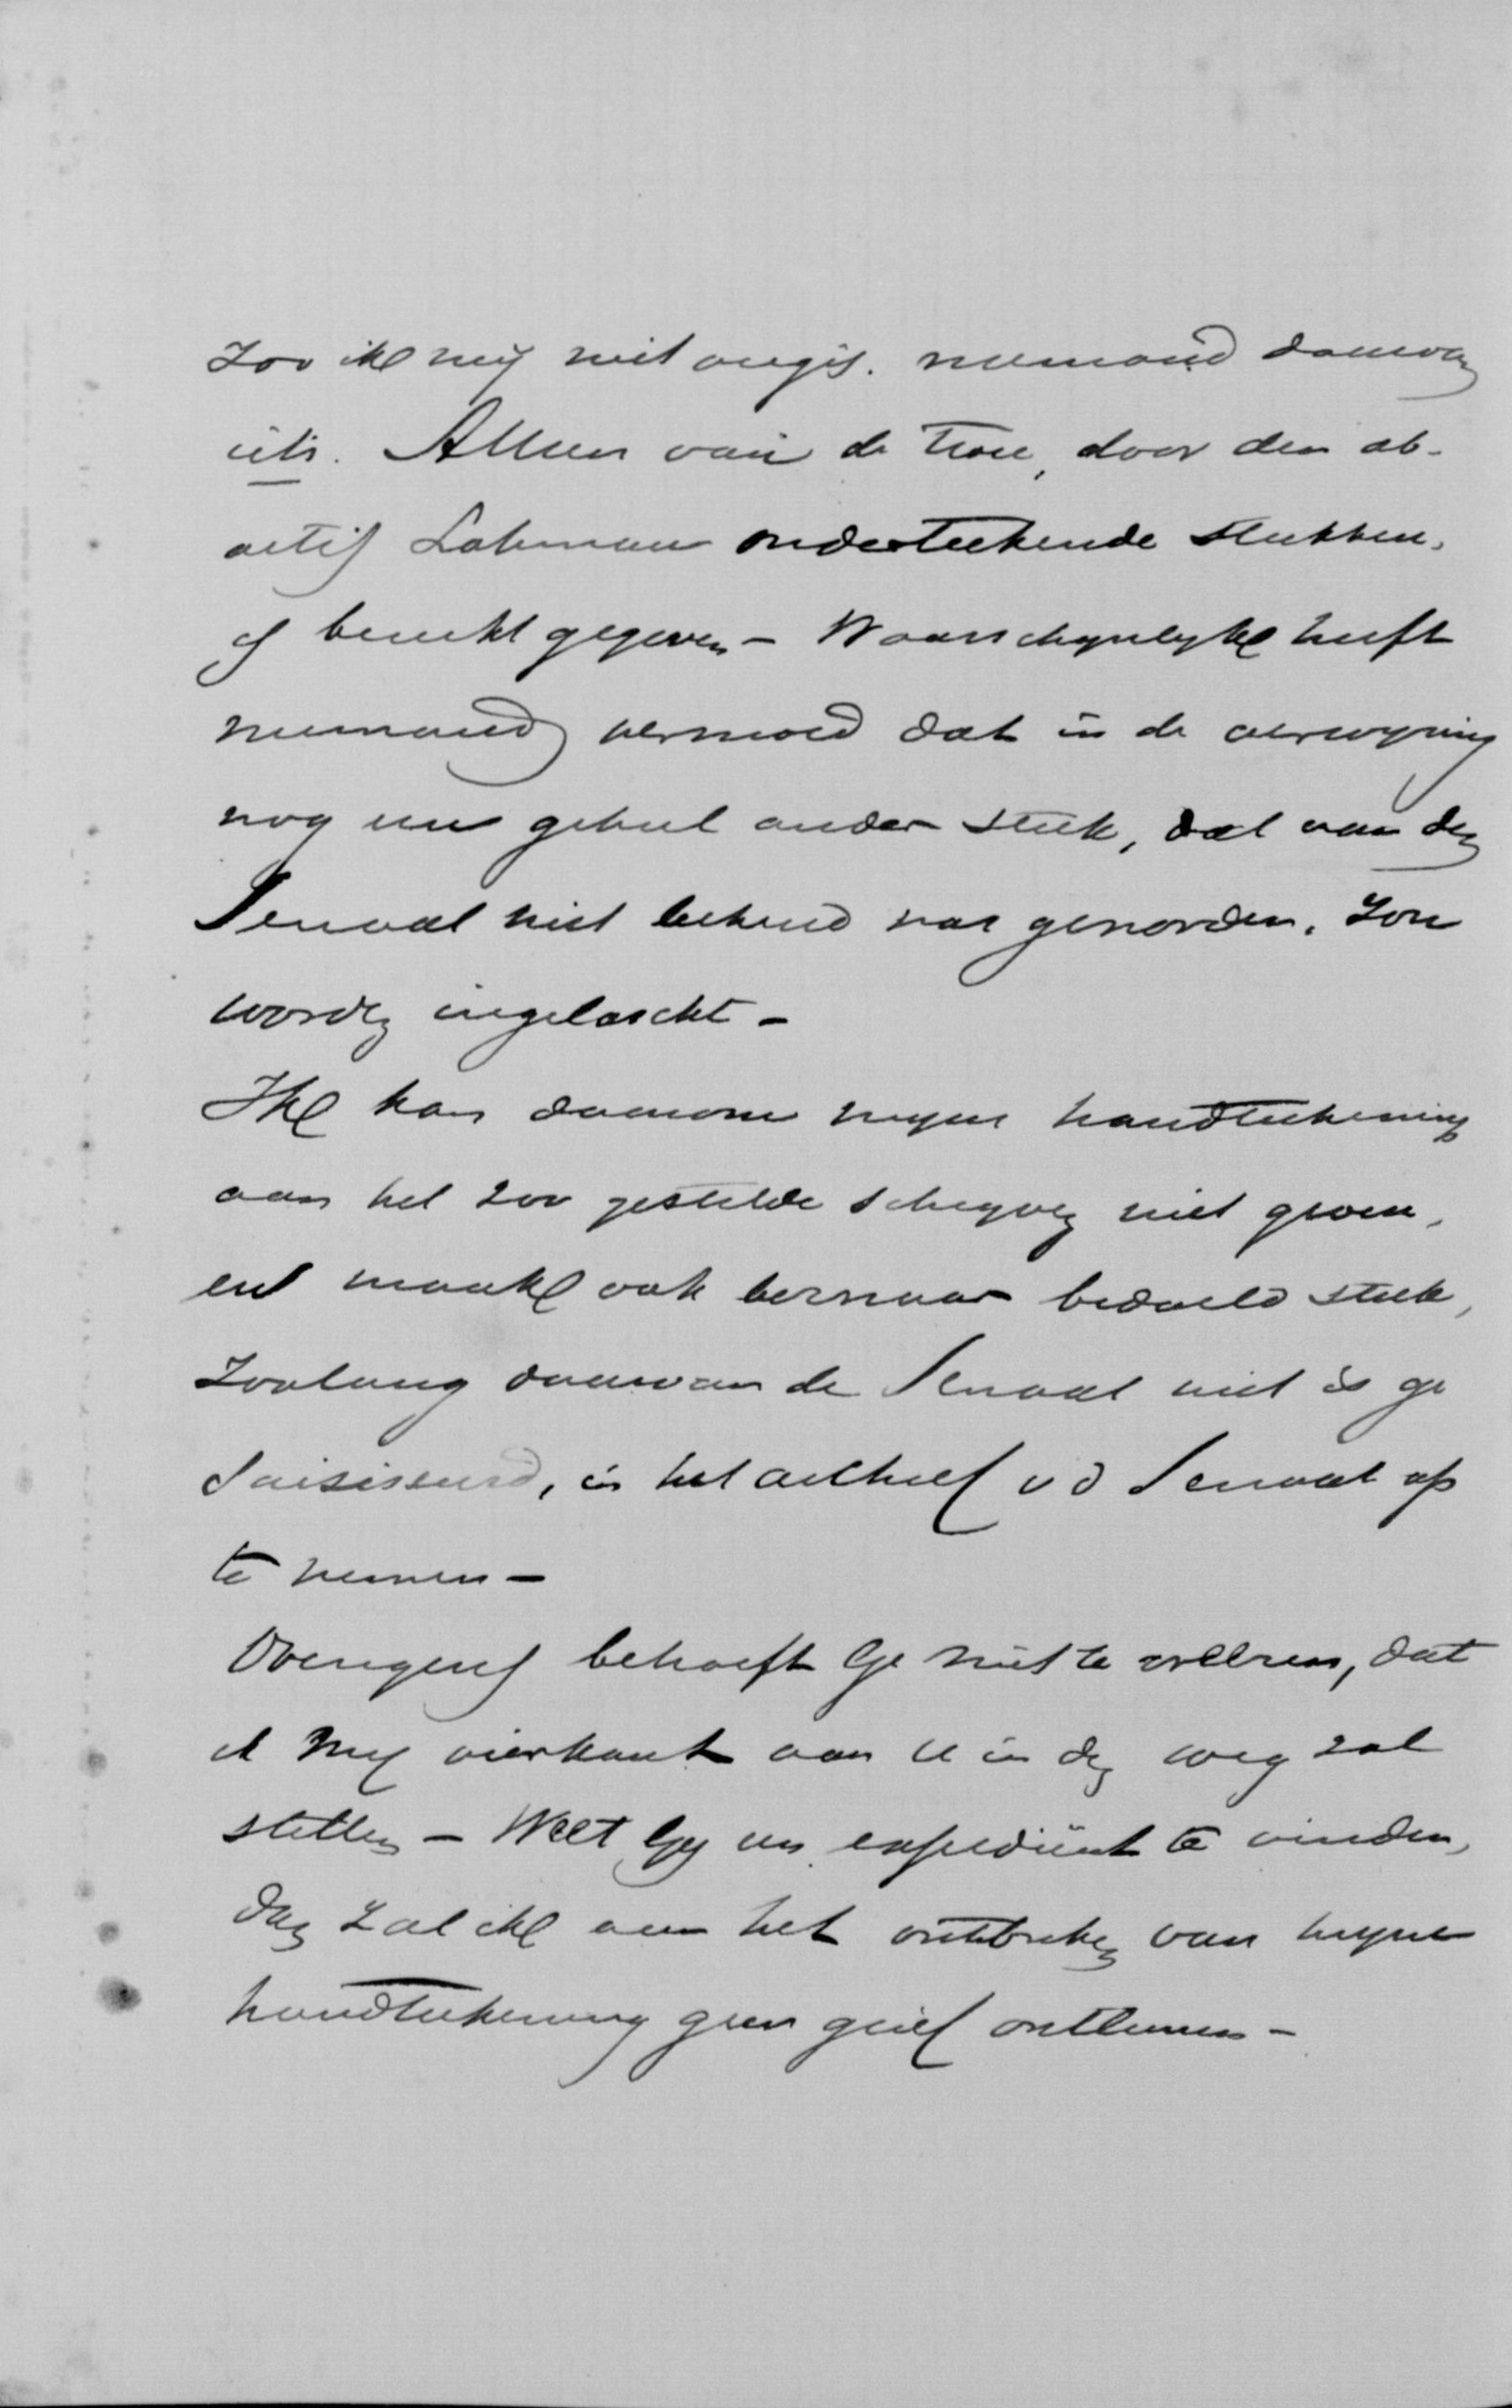 zoo ik mij niet vergis. niemand daarvan
iets. Alleen van de twee, door den ab-
actis Lohman onderteekende stukken,
is bericht gegeven – Waarschynlyk heeft
niemand vermoed dat in de verwyzing
nog een geheel ander stuk, dat aan den
Senaat niet bekend was geworden, zou
worden ingelascht –
Ik kan daarom myne handteekening
aan het zoo gestelde schryven niet geven,
en maak ook bezwaar bedoeld stuk,
zoolang daarvan de Senaat niet is ge
saisisseerd, in het archief v d Senaat op
te nemen –
Overigens behoeft Ge niet te vreezen, dat
ik my vierkant aan U in den weg zal
stellen – Weet Gy een expediënt te vinden,
dan zal ik aan het ontbreken van myne
handteekening geen grief ontleenen –